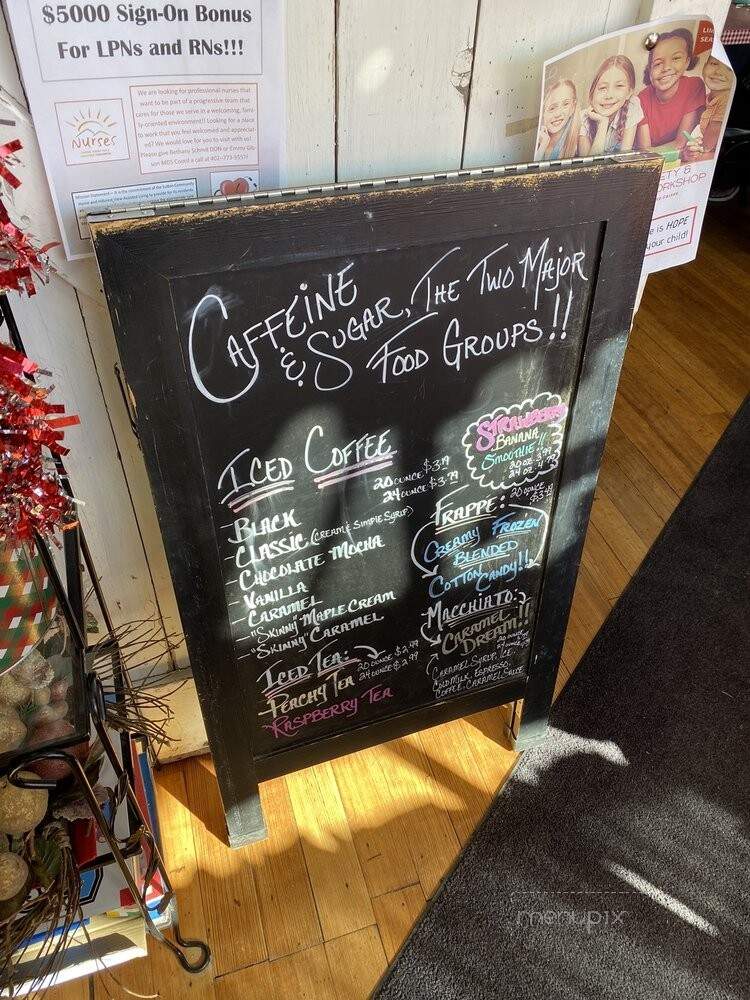 $5000 Sign-On Bonus
For LPNs and RNs!!!
Nurses
We are looking for professional nurses that
want to be part of a progressive team that
cares for those we serve in a welcoming, fami-
ly-oriented environment!! Looking for a place
to work that you feel welcomed and appreciat-
ed? We would love for you to visit with us!
Please give Bethany Schmit DON or Emmy Gib-
son MDS Coord a call at
CAFFEINE
& SUGAR, THE TWO MAJOR
FOOD GROUPS!!
ICED COFFEE
20 OUNCE $3.19
24 OUNCE $3.79
- BLACK
- CLASSIC (CREAM & SIMPLE SYRUP)
- CHOCOLATE MOCHA
- VANILLA
- CARAMEL
- "SKINNY" MAPLE CREAM
- "SKINNY" CARAMEL
ICED TEA:
20 OUNCE $2.49
24 OUNCE $2.99
- PEACHY TEA
- RASPBERRY TEA
STRAWBERRY
BANANA
SMOOTHIE!!
20 OZ
24 OZ
FRAPPE: 20 OUNCE
$3.49
CREAMY FROZEN
BLENDED
COTTON CANDY!!
MACCHIATO:
CARAMEL
DREAM!!
CARAMEL SYRUP, ICE,
COLD MILK, ESPRESSO
COFFEE, CARAMEL SAUCE
HOPE
your child!
menupix